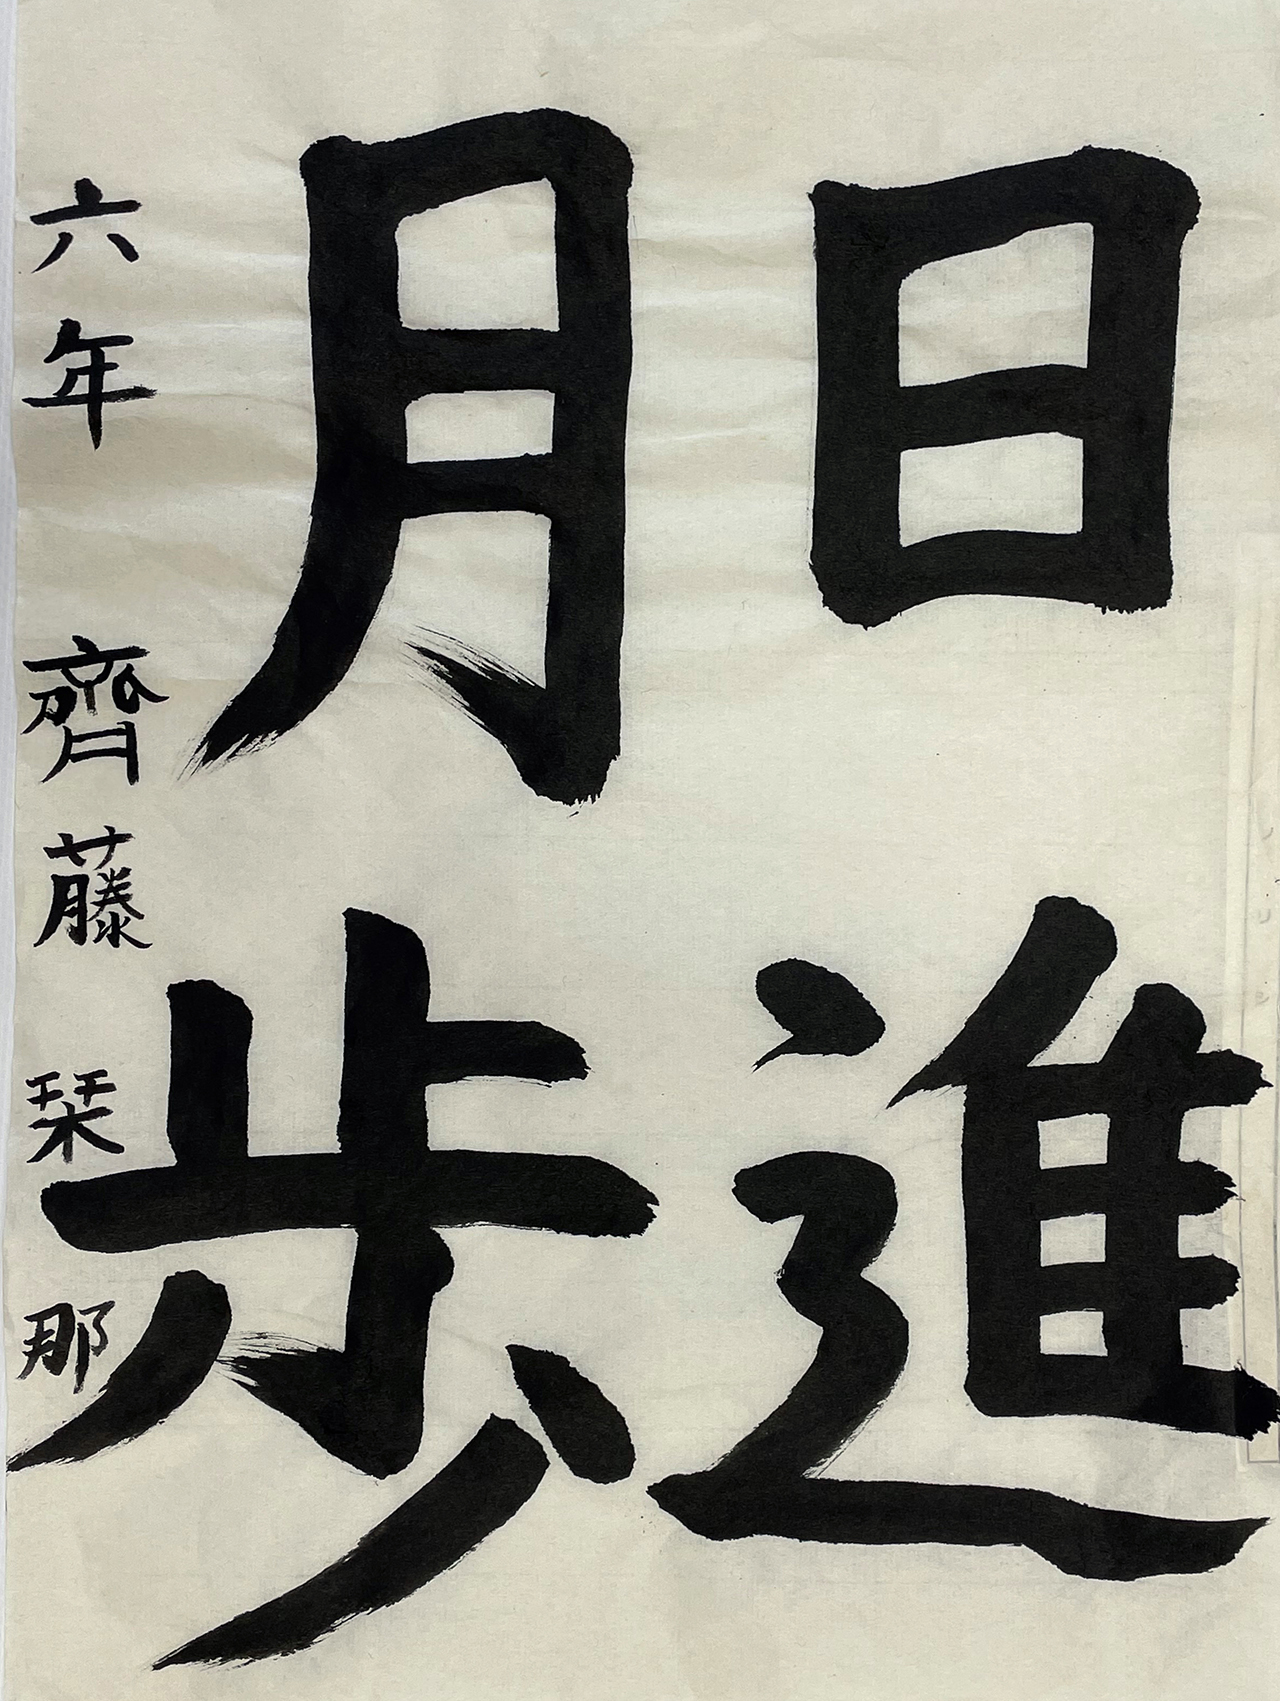 日進
月歩
六年 齊藤栞那